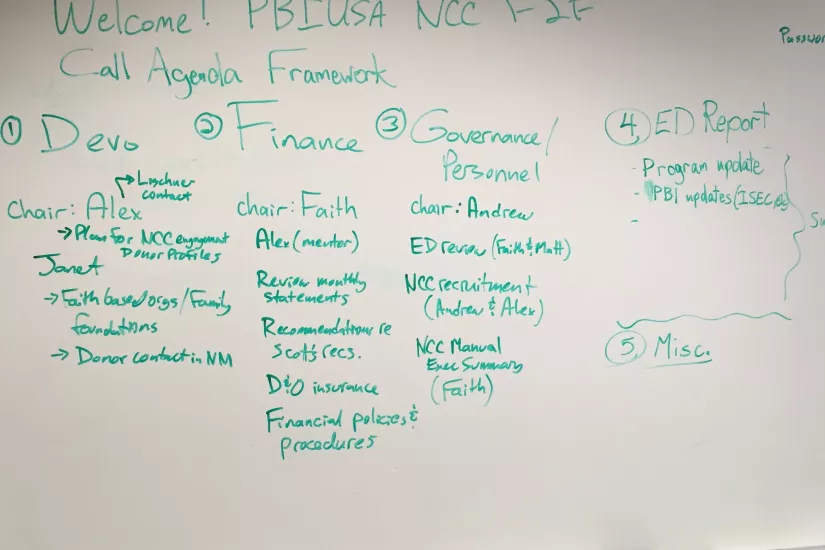 Welcome! PBIUSA NCC F2F
Call Agenda Framework
Passwor
① Devo
→ Lischner
contact
Chair: Alex
→ Plan for NCC engagement
Donor Profiles
Janet
→ Faith based orgs/Family
foundations
→ Donor contact in NM
② Finance
chair: Faith
Alex (mentor)
Review monthly
statements
Recommendations re
Scot's recs.
D&O insurance
Financial policies &
procedures
③ Governance/
Personnel
chair: Andrew
ED review (Faith & Matt)
NCC recruitment
(Andrew & Alex)
NCC Manual
Exec Summary
(Faith)
4, ED Report
- Program update
- PBI updates (ISEC, etc)
-
5, Misc.